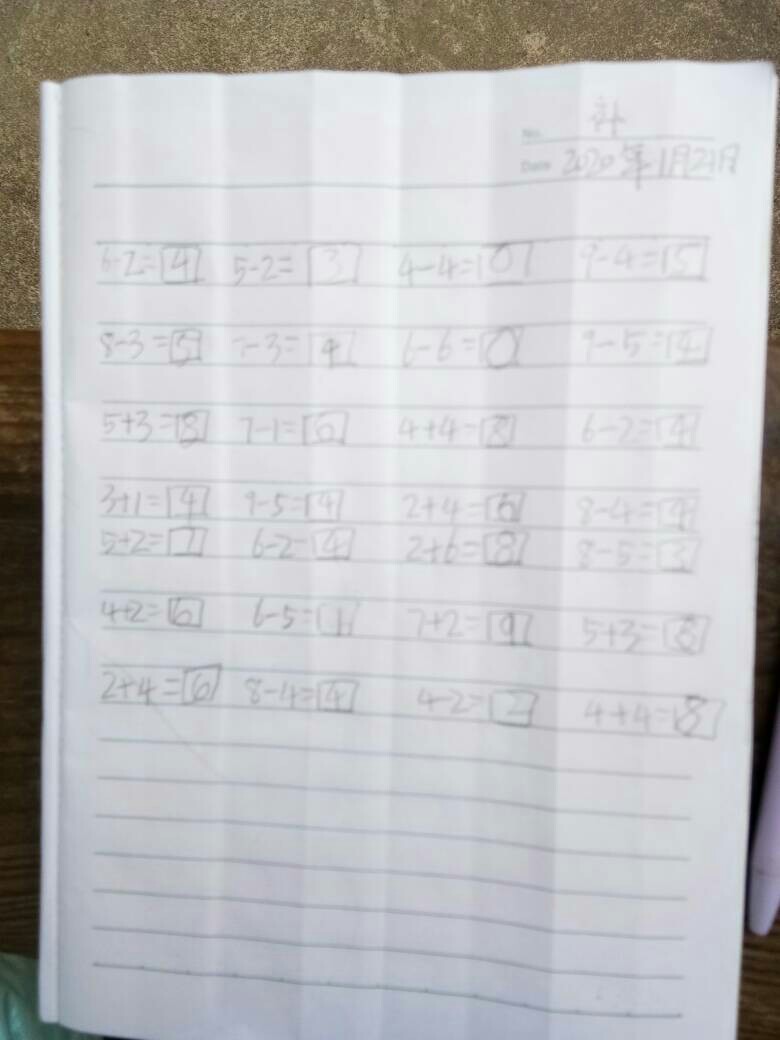 No. 补
Date 2020年1月21日
6-2=4 5-2=3 4-4=0 9-4=5
8-3=5 7-3=4 6-6=0 9-5=4
5+3=8 7-1=6 4+4=8 6-2=4
3+1=4 9-5=4 2+4=6 8-4=4
5+2=7 6-2=4 2+6=8 8-5=3
4+2=6 6-5=1 7+2=9 5+3=8
2+4=6 8-4=4 4-2=2 4+4=8